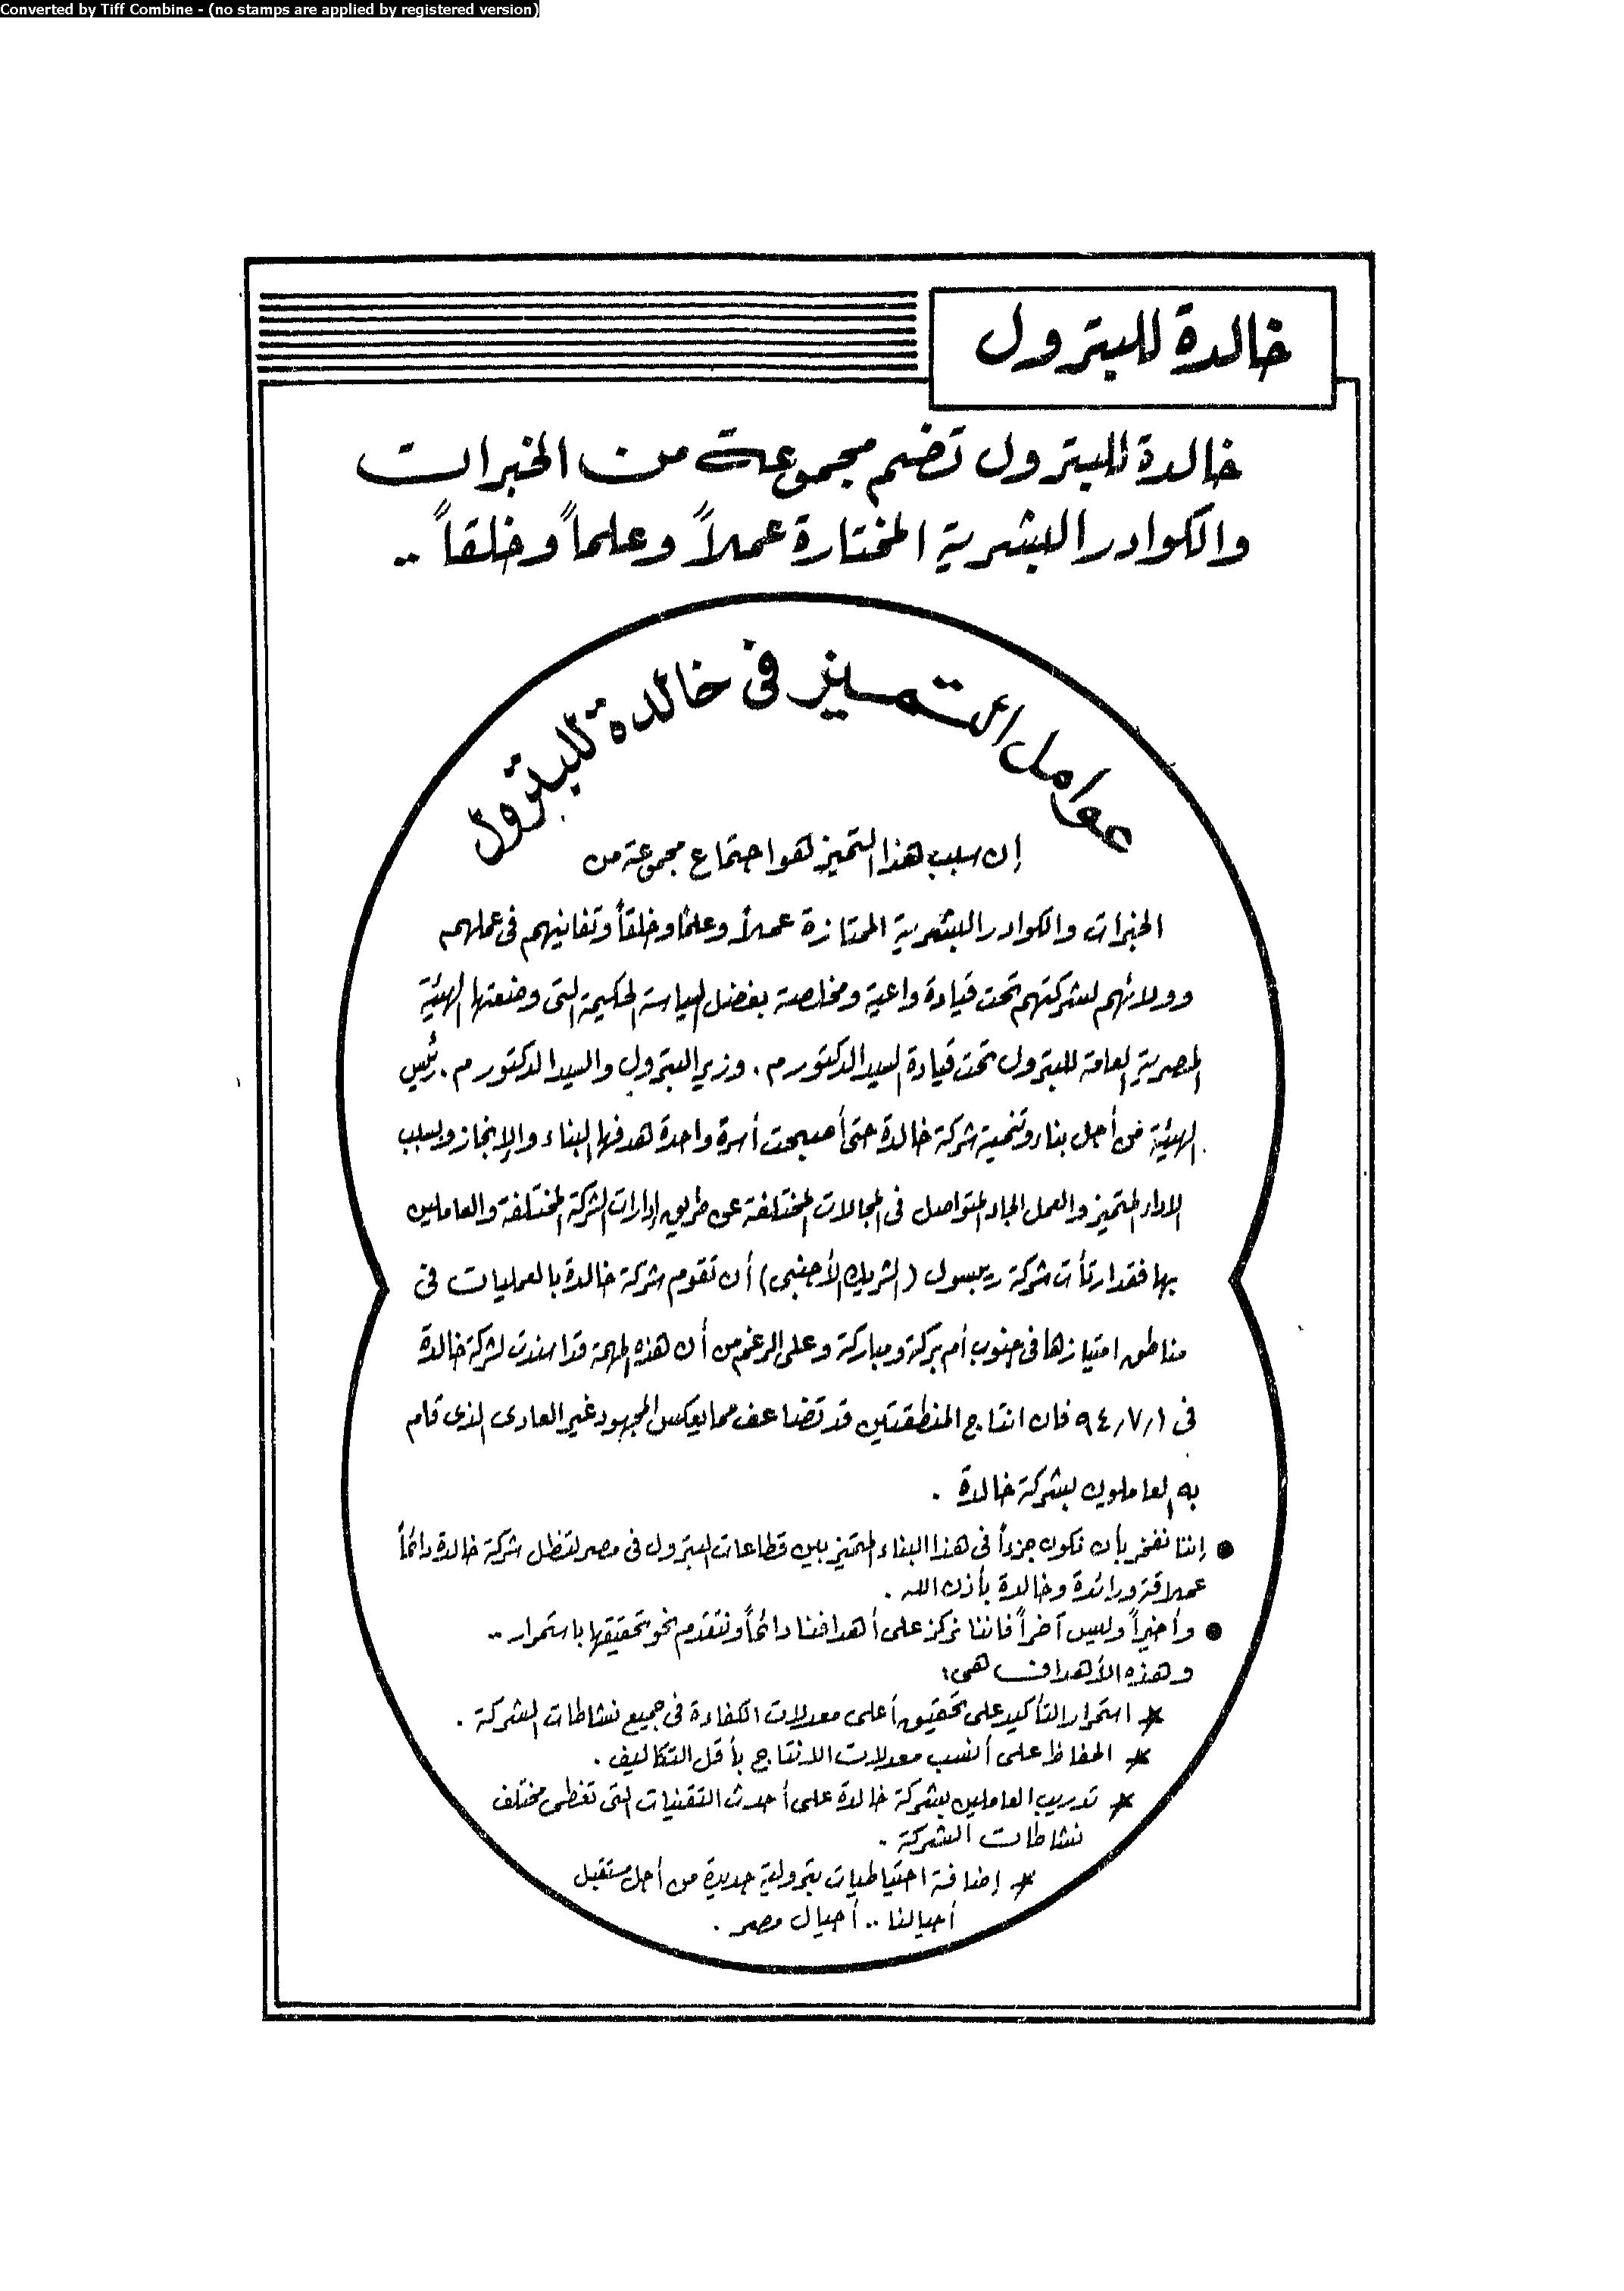 Converted by Tiff Combine - (no stamps are applied by registered version)
خالدة للبترول
خالدة للبترول تضم مجموعة من الخبرات
والكوادر البشرية المختارة عملاً وعلماً وخلقاً ..
عوامل التميز فى خالدة للبترول
إن سبب هذا التميز هو اجتماع مجموعة من
الخبرات والكوادر البشرية الممتازة عملاً وعلماً وخلقاً وتفانيهم فى عملهم
وولائهم لشركتهم تحت قيادة واعية ومخلصة بفضل السياسة الحكيمة التى وضعتها الهيئة
المصرية العامة للبترول تحت قيادة السيد الدكتور م . وزير البترول والسيد الدكتور م . رئيس
الهيئة من أجل بناء وتنمية شركة خالدة حتى أصبحت أسرة واحدة هدفها البناء والإنجاز وبسبب
الاداء المتميز والعمل الجاد المتواصل فى المجالات المختلفة عن طريق إدارات الشركة المختلفة والعاملين
بها فقد ارتأت شركة ريبسول (الشريك الأجنبى) أن تقوم شركة خالدة بالعمليات فى
مناطق امتيازها فى جنوب أم بركة ومباركة وعلى الرغم من أن هذه المهمة قد اسندت لشركة خالدة
فى ٩٤/٧/١ فان انتاج المنطقتين قد تضاعف مما يعكس المجهود غير العادى الذى قام
به العاملون بشركة خالدة .
● إننا نفخر بأن نكون جزءاً فى هذا البناء المتميز بين قطاعات البترول فى مصر لتظل شركة خالدة دائماً
عملاقة ورائدة وخالدة بأذن الله .
● وأخيراً وليس آخراً فاننا نركز على أهدافنا دائماً ونتقدم نحو تحقيقها باستمرار ..
وهذه الأهداف هى:
* استمرار التأكيد على تحقيق أعلى معدلات الكفاءة فى جميع نشاطات الشركة .
* الحفاظ على أنسب معدلات الانتاج بأقل التكاليف .
* تدريب العاملين بشركة خالدة على أحدث التقنيات التى تغطى مختلف
نشاطات الشركة .
* إضافة احتياطيات بترولية جديدة من أجل مستقبل
أجيالنا .. أجيال مصر .